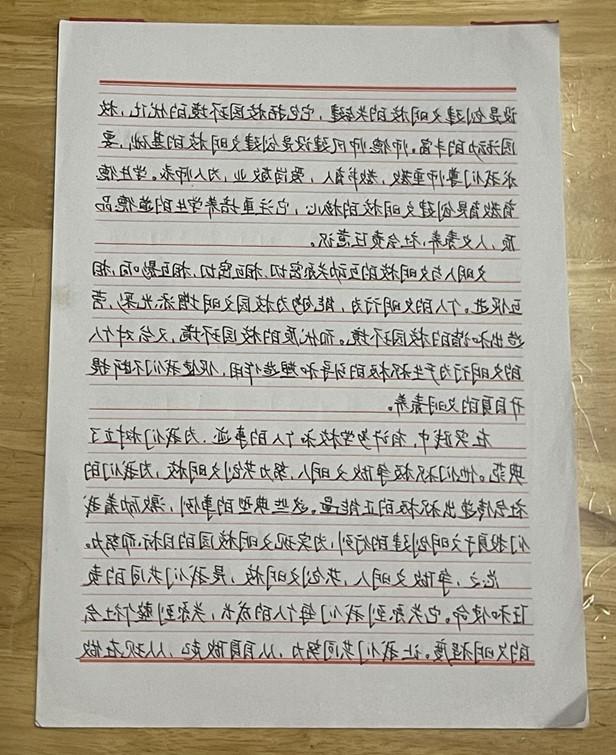 设是创建文明校的关键，它包括校园环境的优化，校
园活动的丰富。师德师风建设是创建文明校的基础，要
求我们尊师重教，教书育人，爱岗敬业，为人师表。学生德
育教育是创建文明校的核心，它注重培养学生的道德品
质，人文素养，社会责任意识。
文明人与文明校的互动关系密切，相互密切，相互影响，相
互促进。个人的文明行为，能够为校园文明增添光彩，营
造出和谐的校园环境。而优质的校园环境，又会对个人
的文明行为产生积极的引导和塑造作用，促使我们不断提
升自身的文明素养。
在实践中，有许多学校和个人的事迹，为我们树立了
典范。他们积极争做文明人，努力共创文明校，为我们的
社会传递出积极的正能量。这些典型的事例，激励着我
们投身于文明创建的行列，为实现文明校园的目标而努力。
总之，争做文明人，共创文明校，是我们共同的责
任和使命。它关系到我们每个人的成长，关系到整个社会
的文明程度。让我们共同努力，从自身做起，从现在做